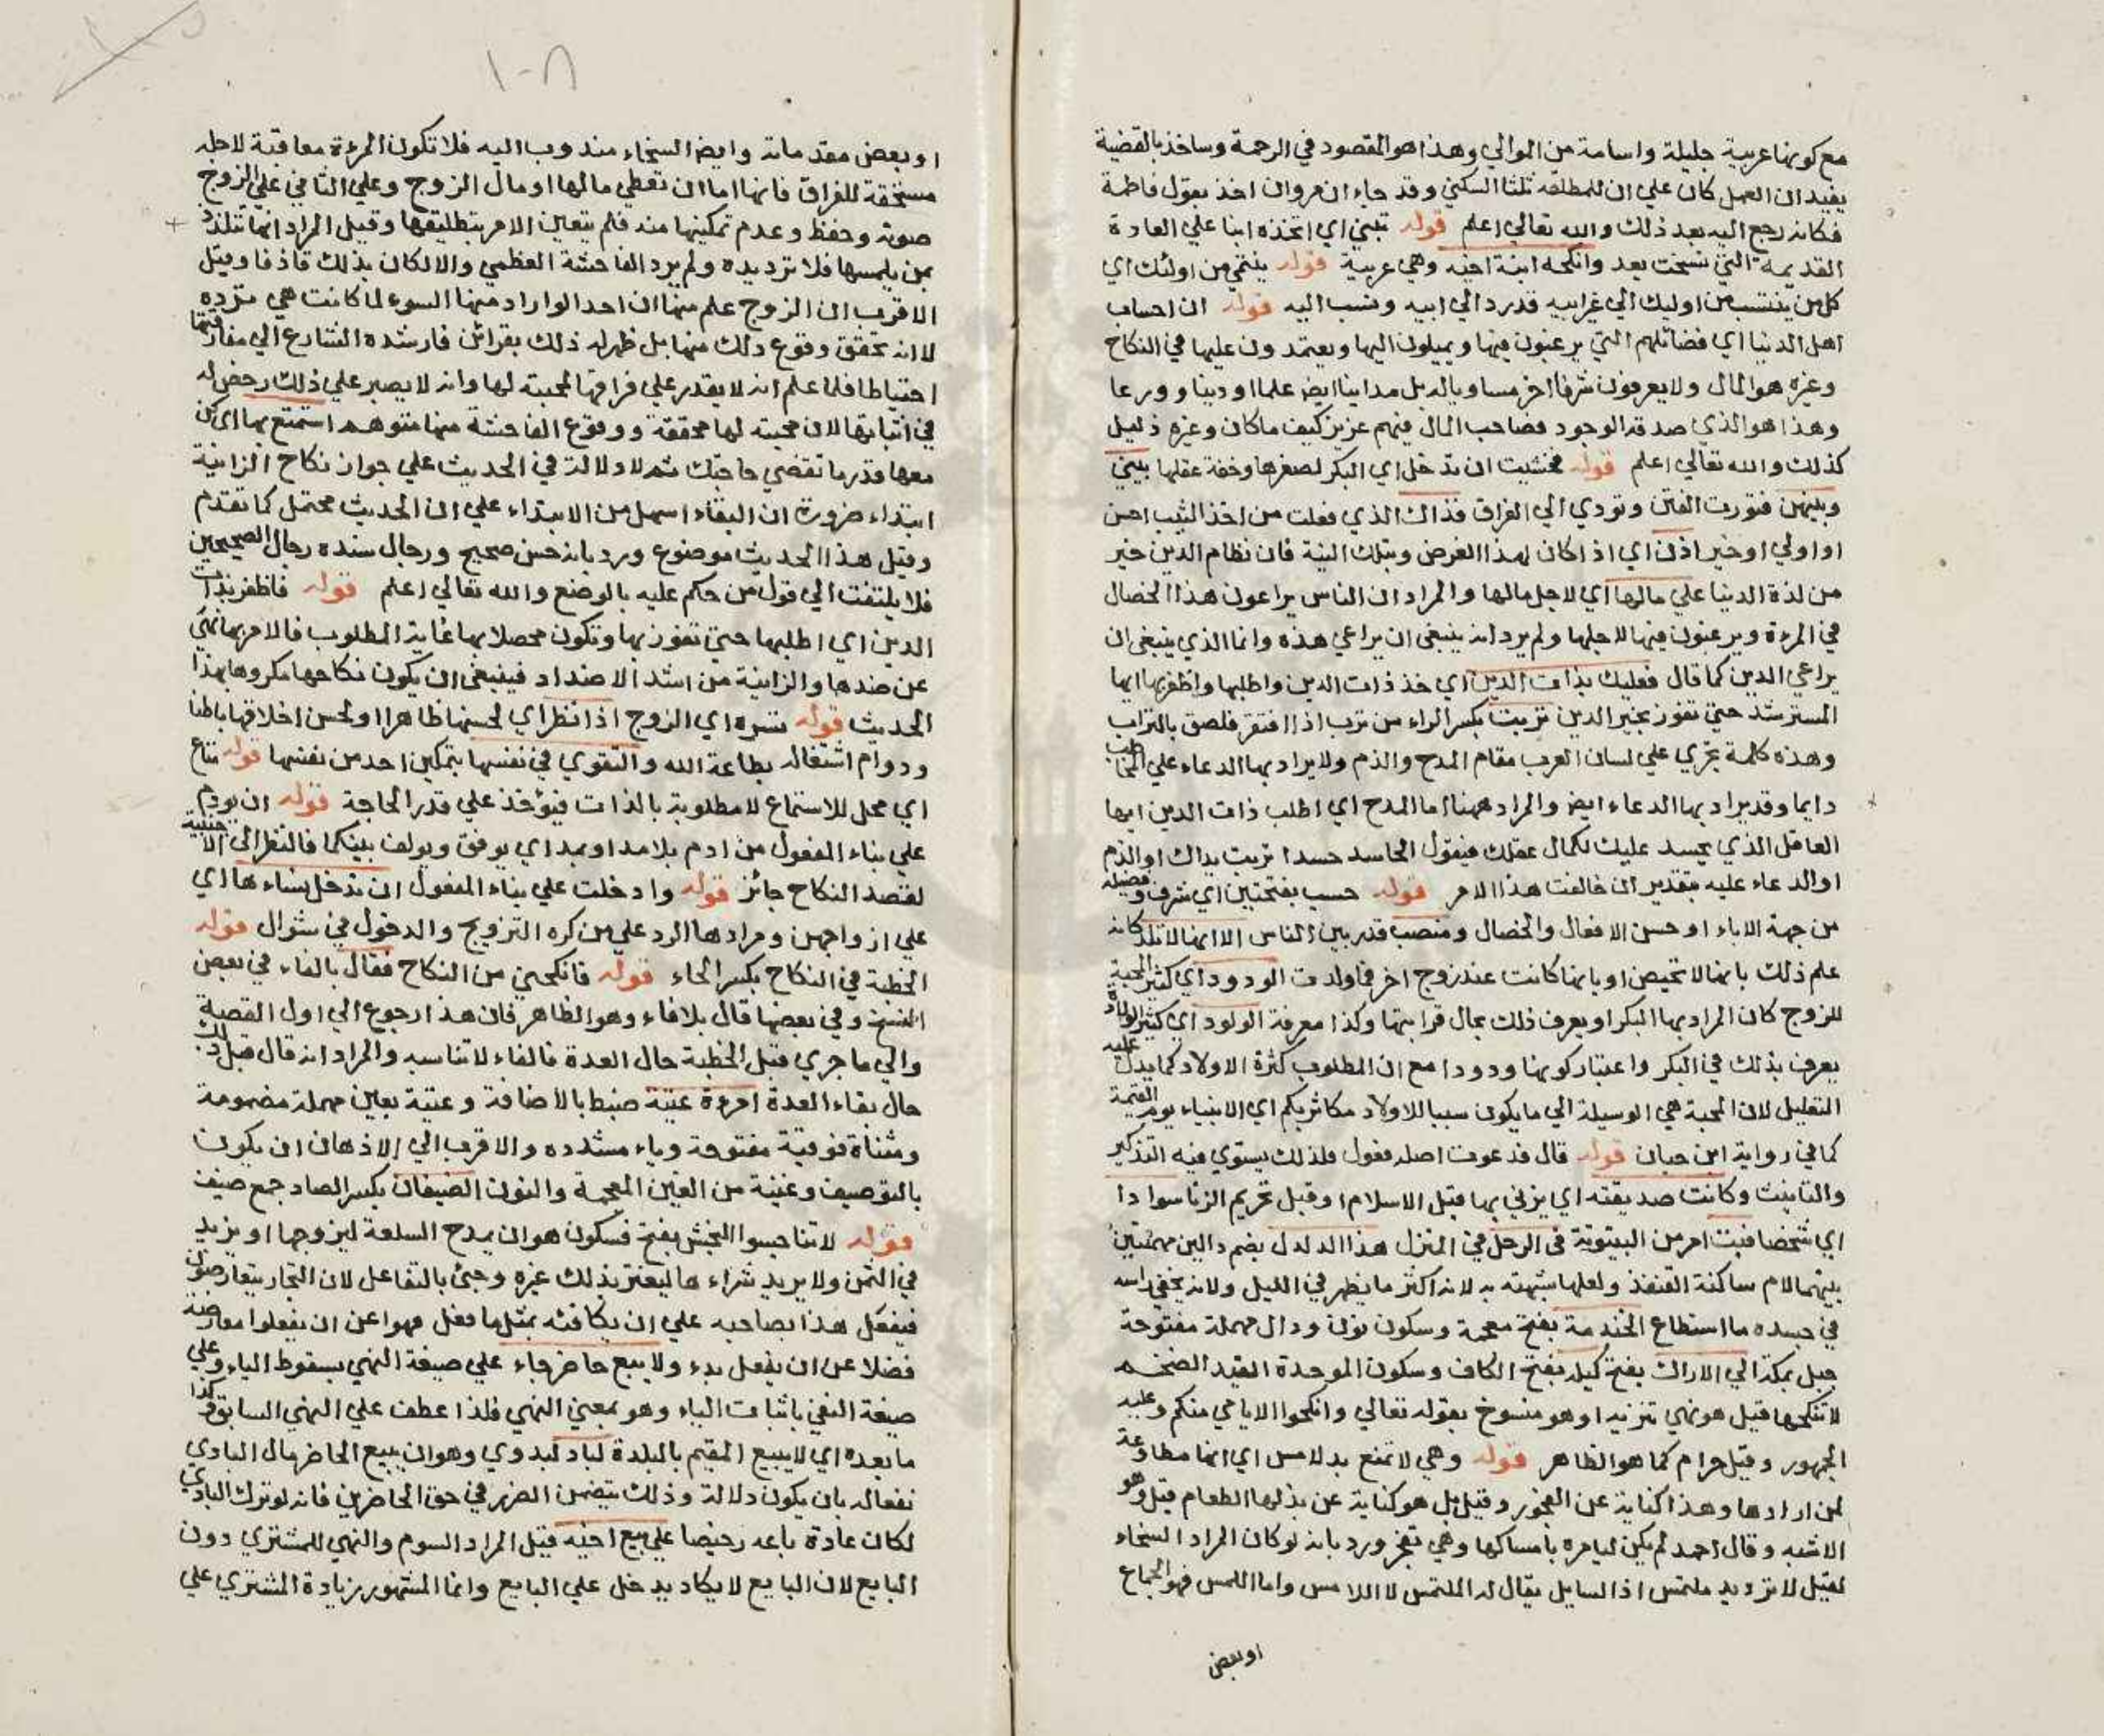 مع كونها عربية جليلة واسامة من الموالي وهذا هو المقصود في الرحمة وساخذ بالقضية
يفيد ان العمل كان علي ان للمطلقة ثلثا السكني وقد جاء ان مروان اخذ بقول فاطمة
فكانه رجع اليه بعد ذلك والله تعالي اعلم قوله تبني اي اتخذه ابنا علي العادة
القديمة التي نسخت بعد وانكحه ابنة اخيه وهي عربية قوله ينتمي من اولئك اي
كل من ينتسب من اوليك الي غير ابيه قد رد الي ابيه ونسب اليه قوله ان احساب
اهل الدنيا اي فضائلهم التي يرغبون فيها ويميلون اليها ويعتمدون عليها في النكاح
وغيره هو المال ولا يعرفون شرفا اخر مساويا له بل مدانيا ايض علما او دينا وورعا
وهذا هو الذي صدقه الوجود فصاحب المال فيهم عزيز كيف ما كان وغيره ذليل
كذلك والله تعالي اعلم قوله فخشيت ان تدخل اي البكر لصغرها وخفة عقلها بيني
وبينهن فتورث الفتن وتودي الي الفراق فذاك الذي فعلت من اخذ الثيب احسن
او اولي او خير اذن اي اذا كان لهذا الغرض وبتلك النية فان نظام الدين خير
من لذة الدنيا علي مالها اي لاجل مالها والمراد ان الناس يراعون هذا الخصال
في المرءة ويرغبون فيها لاجلها ولم يرد انه ينبغي ان يراعي هذه وانما الذي ينبغي ان
يراعي الدين كما قال فعليك بذات الدين اي خذ ذات الدين واطلبها واظفر بها ايها
المسترشد حتي تفوز بخير الدين تربت بكسر الراء من ترب اذا افتقر فلصق بالتراب
وهذه كلمة تجري علي لسان العرب مقام المدح والذم ولا يراد بها الدعاء علي المخاطب
دايما وقد يراد بها الدعاء ايض والمراد ههنا اما المدح اي اطلب ذات الدين ايها
العاقل الذي يحسد عليك لكمال عقلك فيقول الحاسد حسدا تربت يداك او الذم
او الدعاء عليه بتقدير ان خالفت هذا الامر قوله حسب بفتحتين اي شرف وفضيلة
من جهة الاباء او حسن الافعال والخصال ومنصب قدر بين الناس الا انها لا تلد كانه
علم ذلك بانها لا تحيض او بانها كانت عند زوج اخر فما ولدت الودود اي كثير المحبة
للزوج كان المراد بها البكر او يعرف ذلك بحال قرابتها وكذا معرفة الولود اي كثير الولادة
يعرف بذلك في البكر واعتبار كونها ودودا مع ان المطلوب كثرة الاولاد كما يدل عليه
التعليل لان المحبة هي الوسيلة الي ما يكون سببا للاولاد مكاثر بكم اي الانبياء يوم القيمة
كما في رواية ابن حبان قوله قال فدعوت اصله فعول فلذلك يستوي فيه التذكير
والتانيث وكانت صديقته اي يزني بها قبل الاسلام او قبل تحريم الزنا سوادا
اي شخصا فبت امر من البيتوتة في الرحل في المنزل هذا الدلدل بضم دالين مهملتين
بينهما لام ساكنة القنفذ ولعلها شبهته به لانه اكثر ما يظهر في الليل ولانه يخفي راسه
في جسده ما استطاع الخندمة بفتح معجمة وسكون نون ودال مهملة مفتوحة
جبل بمكة الي الاراك بفتح كبله بفتح الكاف وسكون الموحدة القيد الضخم
لا تنكحها قيل هو نهي تنزيه او هو منسوخ بقوله تعالي وانكحوا الايامي منكم وعليه
الجمهور وقيل حرام كما هو الظاهر قوله وهي لا تمنع يد لامس اي انها مطاوعة
لمن ارادها وهذا كناية عن الفجور وقيل بل هو كناية عن بذلها الطعام قيل وهو
الاشبه وقال احمد لم يكن ليامره بامساكها وهي تفجر ورد بانه لو كان المراد السخاء
لقيل لا ترد يد ملتمس اذ السايل يقال له الملتمس لا اللامس واما اللمس فهو الجماع
او بعض
١٠٨
او بعض مقدماته وايض السخاء مندوب اليه فلا تكون المرءة معاقبة لاجله
مستحقة للفراق فانها اما ان تعطي مالها او مال الزوج وعلي الثاني علي الزوج
صونه وحفظ وعدم تمكينها منه فلم يتعين الامر بتطليقها وقيل المراد انها تتلذذ
بمن يلمسها فلا ترد يده ولم يرد الفاحشة العظمي والا لكان بذلك قاذفا وقيل
الاقرب ان الزوج علم منها ان احدا لو اراد منها السوء لما كانت هي ترده
لا انه تحقق وقوع ذلك منها بل ظهر له ذلك بقرائن فارشده الشارع الي مفارقتها
احتياطا فلما علم انه لا يقدر علي فراقها لمحبته لها وانه لا يصبر علي ذلك رخص له
في اثباتها لان محبته لها محققة ووقوع الفاحشة منها متوهم استمتع بها اي كن
معها قدر ما تقضي حاجتك ثم لا دلالة في الحديث علي جواز نكاح الزانية
ابتداء ضرورة ان البقاء اسهل من الابتداء علي ان الحديث محتمل كما تقدم
وقيل هذا الحديث موضوع ورد بانه حسن صحيح ورجال سنده رجال الصحيحين
فلا يلتفت الي قول من حكم عليه بالوضع والله تعالي اعلم قوله فاظفر بذات
الدين اي اطلبها حتي تفوز بها وتكون محصلا بها غاية المطلوب فالامر بها نهي
عن ضدها والزانية من اشد الاضداد فينبغي ان يكون نكاحها مكروها بهذا
الحديث قوله تسره اي الزوج اذا نظر اي لحسنها ظاهرا او لحسن اخلاقها باطنا
ودوام اشتغاله بطاعة الله والتقوي في نفسها بتمكين احد من نفسها قوله متاع
اي محل للاستمتاع لا مطلوبة بالذات فيؤخذ علي قدر الحاجة قوله ان يودم
علي بناء المفعول من ادم بلا مد او بمد اي يوفق ويولف بينكما فالنظر الي الاجنبية
لقصد النكاح جائز قوله وادخلت علي بناء المفعول ان تدخل نساءها اي
علي ازواجهن ومرادها الرد علي من كره التزويج والدخول في شوال قوله
الخطبة في النكاح بكسر الخاء قوله فانكحني من النكاح فقال بالفاء في بعض
النسخ وفي بعضها قال بلا فاء وهو الظاهر فان هذا رجوع الي اول القصة
والي ما جري قبل الخطبة حال العدة فالفاء لا تناسبه والمراد انه قال قبل ذلك
حال بقاء العدة امرءة عتية ضبط بالاضافة وعتية بعين مهملة مضمومة
ومثناة فوقية مفتوحة وياء مشددة والاقرب الي الاذهان ان يكون
بالتوصيف وغنية من الغين المعجمة والنون الضيفان بكسر الصاد جمع ضيف
قوله لا تناجسوا النجش بفتح فسكون هو ان يمدح السلعة ليزوجها او يزيد
في الثمن ولا يريد شراءها ليغتر بذلك غيره وجئ بالتفاعل لان التجار يتعارضون
فيفعل هذا بصاحبه علي ان يكافئه بمثل ما فعل فهوا عن ان يفعلوا معارضة
فضلا عن ان يفعل بدء ولا يبع حاضر جاء علي صيغة النهي بسقوط الياء وعلي
صيغة النفي باثبات الياء وهو بمعني النهي فلذا عطف علي النهي السابق وكذا
ما بعده اي لا يبيع المقيم بالبلدة لباد لبدوي وهو ان يبيع الحاضر مال البادي
نفعا له بان يكون دلالة وذلك يتضمن الضرر في حق الحاضرين فانه لو ترك البادي
لكان عادة باعه رخيصا علي بيع اخيه قيل المراد السوم والنهي للمشتري دون
البايع لان البايع لا يكاد يدخل علي البايع وانما المشهور زيادة المشتري علي